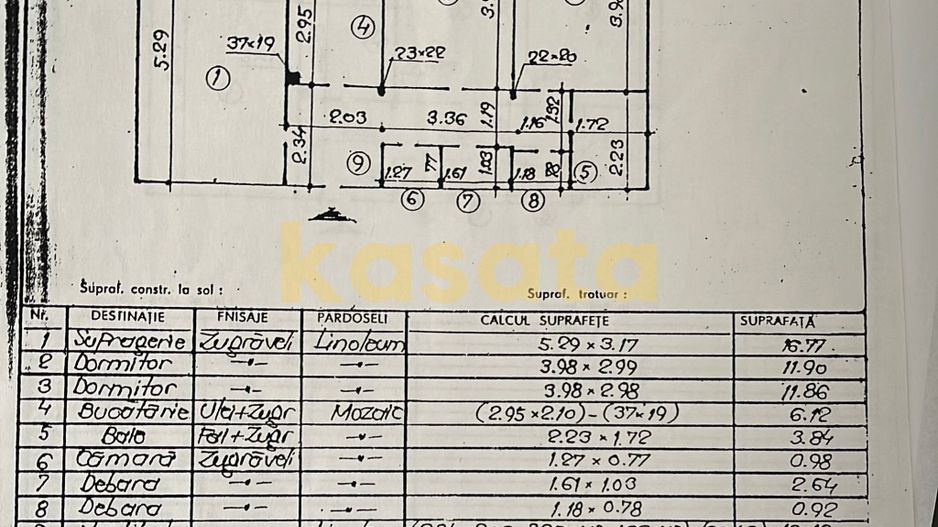 5.29
2.95
4
3.9
3.98
37×19
23×22
22×20
1
2.03
3.36
1.19
1.16
1.32
1.72
2.34
9
1.27
77
1.61
1.03
1.18
5
2.23
6
7
8
kasata
Supraf. constr. la sol :
Supraf. trotuar :
Nr. DESTINAȚIE FNISAJE PARDOSELI CALCUL SUPRAFEȚE SUPRAFAȚĂ
1 Sufragerie Zugrăveli Linoleum 5.29 × 3.17 16.77
2 Dormitor —"— —"— 3.98 × 2.99 11.90
3 Dormitor —"— —"— 3.98 × 2.98 11.86
4 Bucătărie Ulei+Zugr Mozaic (2.95 × 2.10) – (37 × 19) 6.12
5 Baie Fai+Zugr —"— 2.23 × 1.72 3.84
6 Cămară Zugrăveli —"— 1.27 × 0.77 0.98
7 Debara —"— —"— 1.61 × 1.03 2.64
8 Debara —"— —"— 1.18 × 0.78 0.92